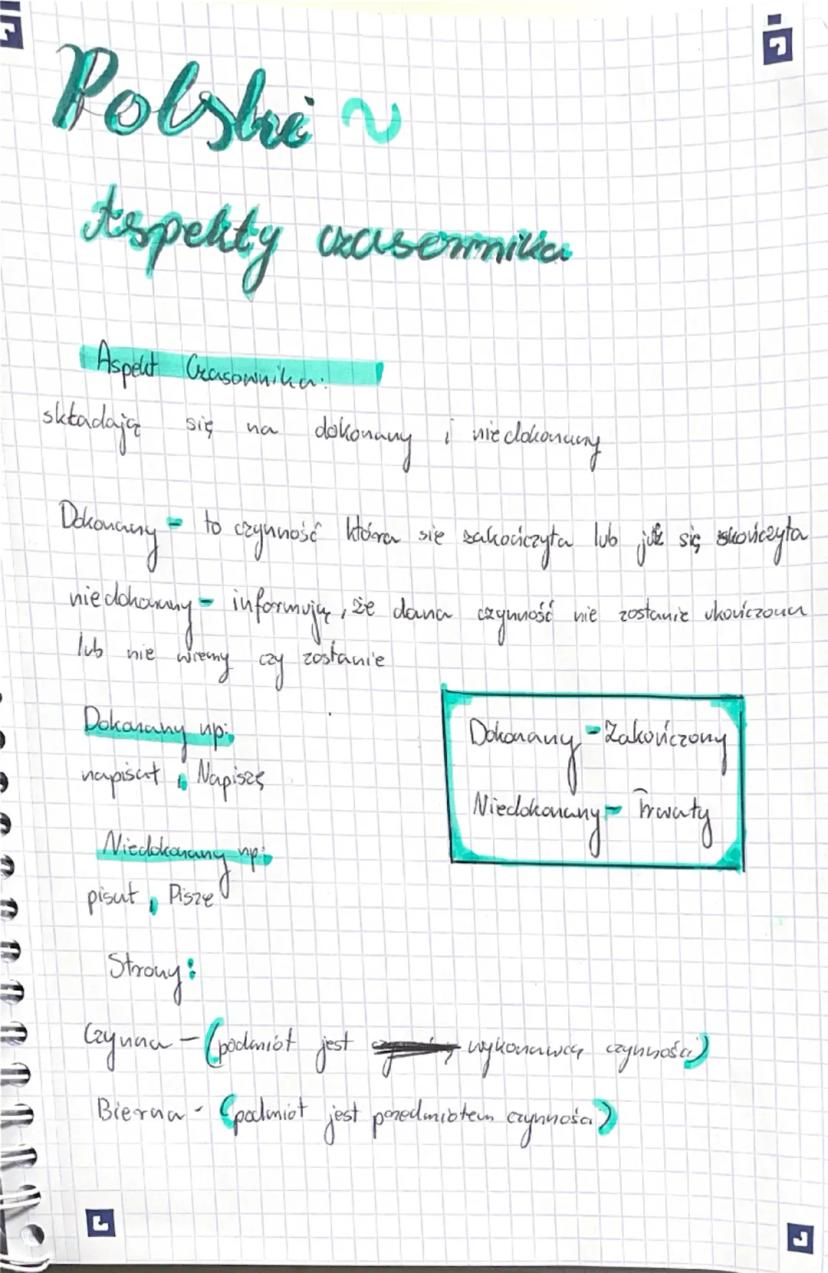 Polski ~
Aspekty czasownika
Aspekt Czasownika:
składają się na dokonany i niedokonany
Dokonany - to czynność która się zakończyła lub już się skończyła
niedokonany - informują, że dana czynność nie zostanie ukończona
lub nie wiemy czy zostanie
Dokonany np:
napisał, Napiszę
Dokonany - Zakończony
Niedokonany - Trwały
Niedokonany np:
pisał, Piszę
Strony:
Czynna - (podmiot jest wykonawcą czynności)
Bierna - (podmiot jest przedmiotem czynności)